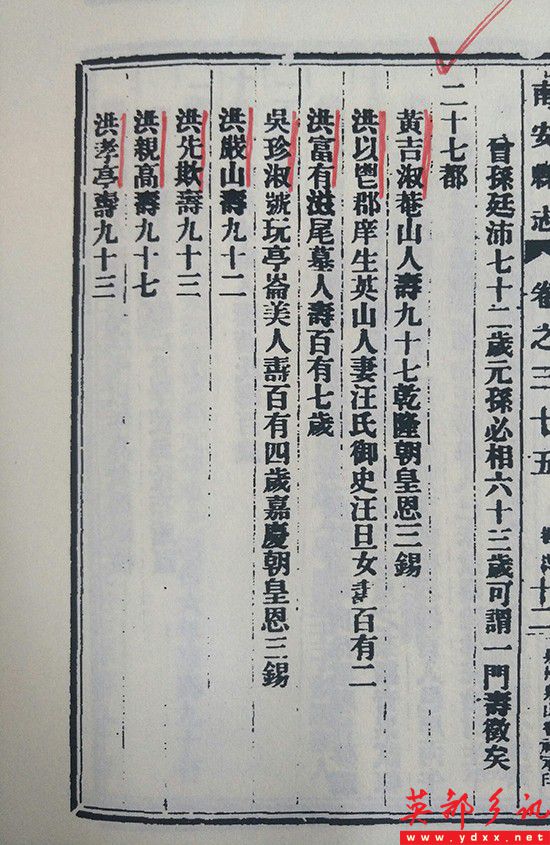 南安縣志 卷之三十五
曾孫廷沛七十二歲元孫必相六十三歲可謂一門壽徵矣
二十七都
黃吉淑菴山人壽九十七乾隆朝皇恩三錫
洪以鬯郡庠生英山人妻汪氏御史汪旦女壽百有二
洪富有滋尾墓人壽百有七歲
吳珍淑號玩亭崙美人壽百有四歲嘉慶朝皇恩三錫
洪嚴山壽九十二
洪先欺壽九十三
洪親高壽九十七
洪孝亭壽九十三
英都乡讯
www.ydxx.net